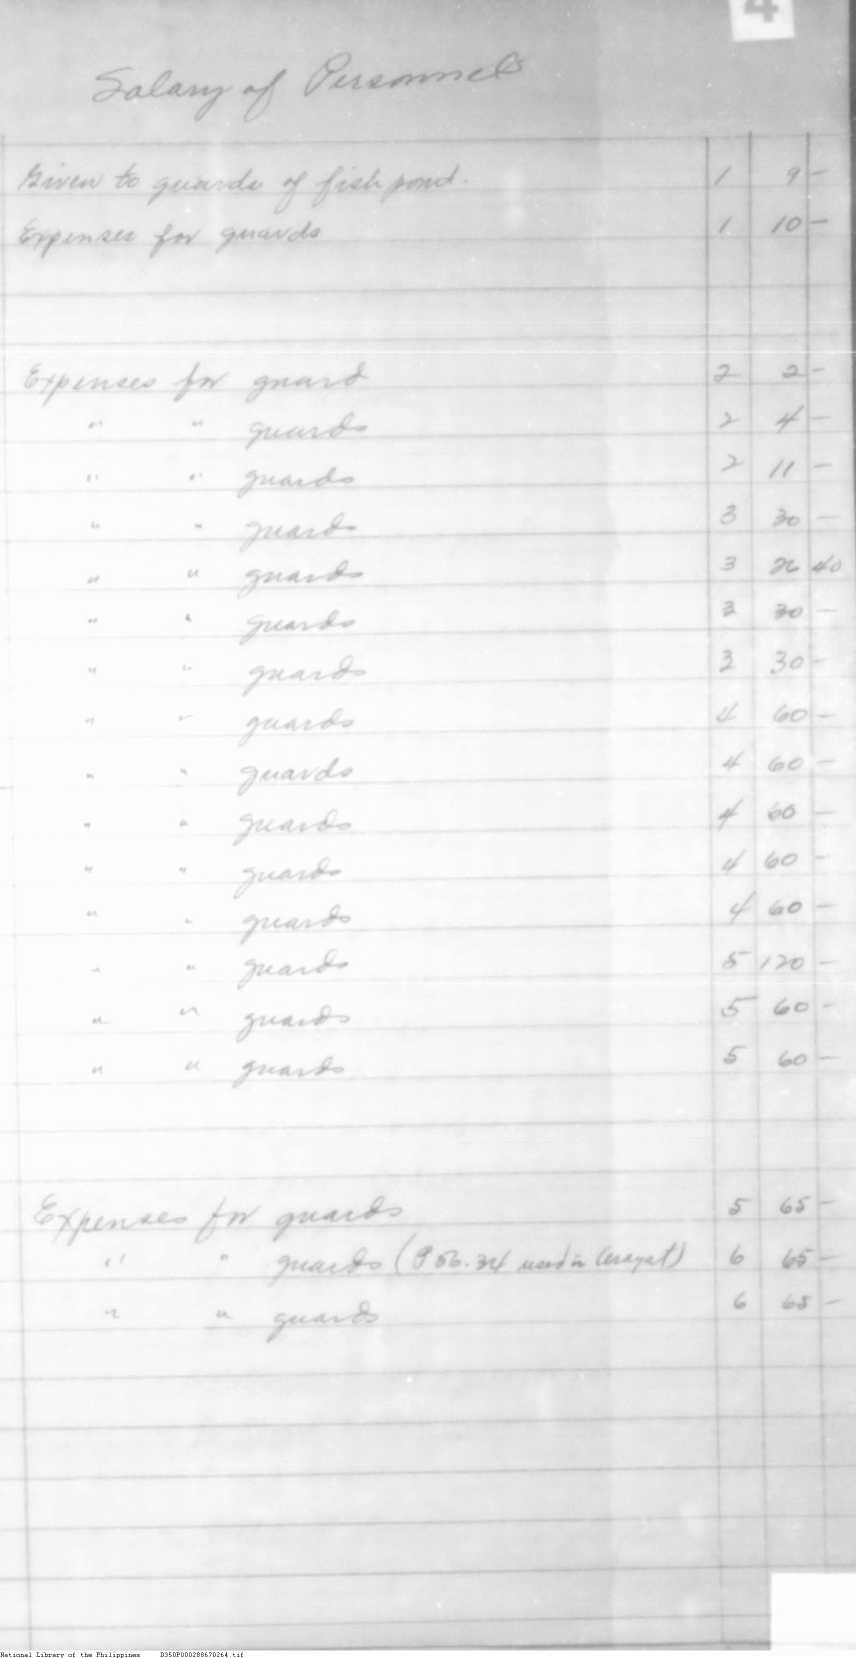 4
Salary of Personnels
Given to guards of fish pond. 1 9 -
Expenses for guards 1 10 -
Expenses for guard 2 2 -
" " guards 2 4 -
" " guards 2 11 -
" " guards 3 30 -
" " guards 3 26 40
" " guards 3 30 -
" " guards 3 30 -
" " guards 4 60 -
" " guards 4 60 -
" " guards 4 60 -
" " guards 4 60 -
" " guards 4 60 -
" " guards 5 120 -
" " guards 5 60 -
" " guards 5 60 -
Expenses for guards 5 65 -
" " guards (₱56.34 used in Carayat) 6 65 -
" " guards 6 65 -
National Library of the Philippines D350P000288670264.tif